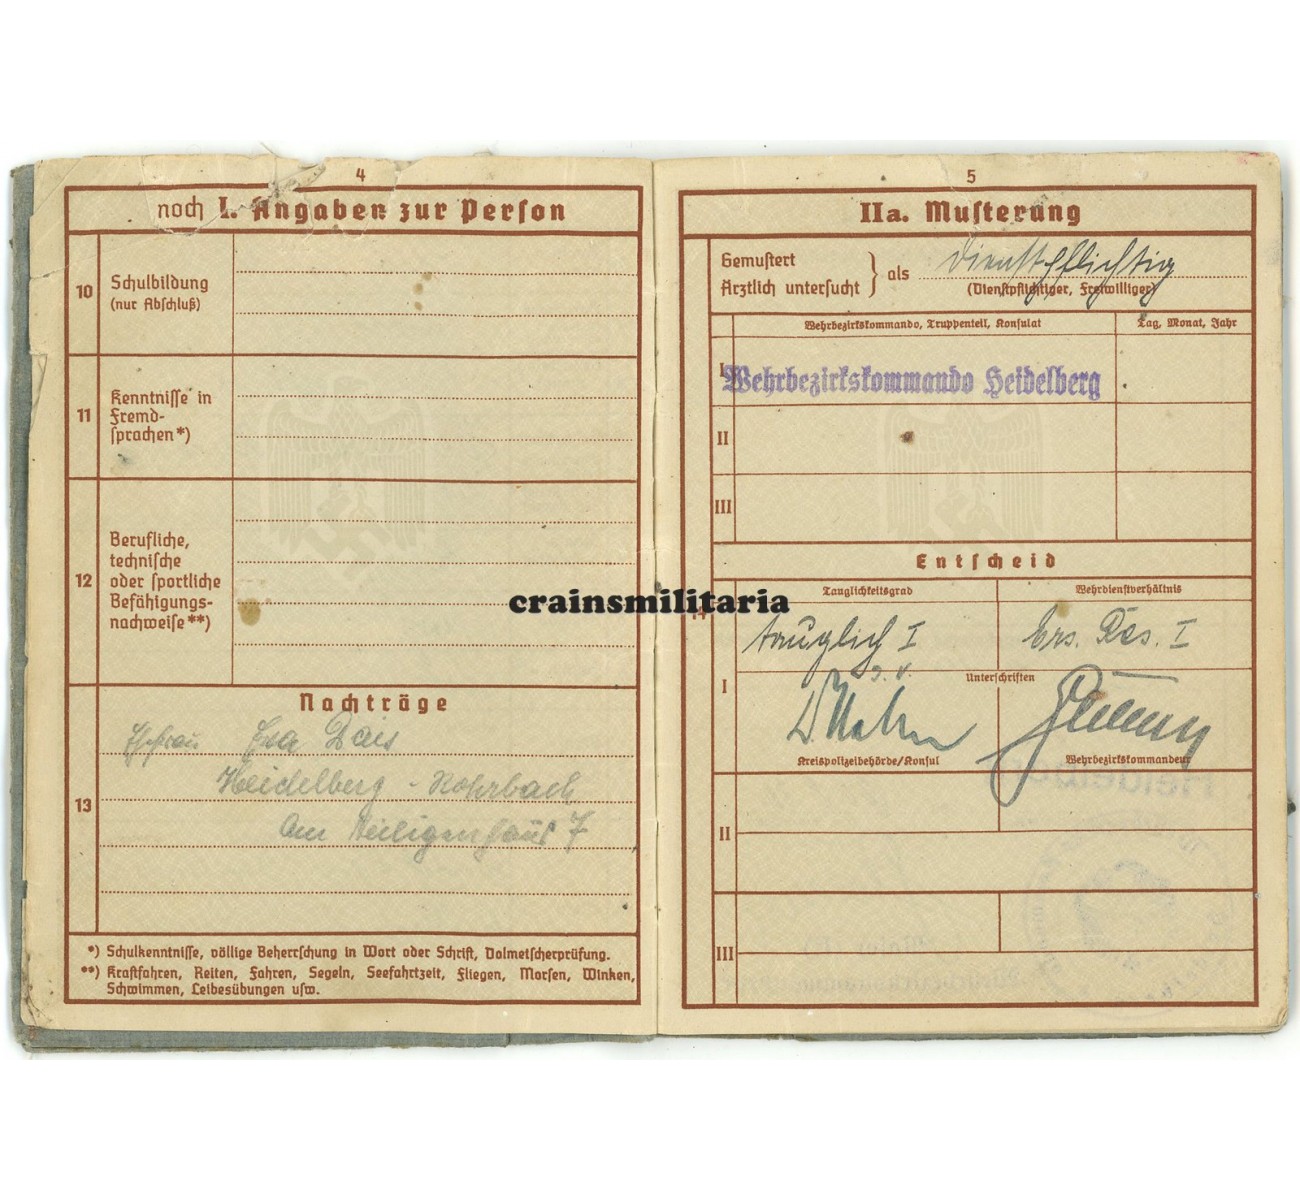 4
noch I. Angaben zur Person
10 Schulbildung
(nur Abschluß)
11 Kenntnisse in
Fremd-
sprachen*)
12 Berufliche,
technische
oder sportliche
Befähigungs-
nachweise**)
Nachträge
13
Ehefrau Eva Dais
Heidelberg - Rohrbach
Am Heiligenhaus 7
*) Schulkenntnisse, völlige Beherrschung in Wort oder Schrift, Dolmetscherprüfung.
**) Kraftfahren, Reiten, Fahren, Segeln, Seefahrtzeit, Fliegen, Morsen, Winken,
Schwimmen, Leibesübungen usw.
5
IIa. Musterung
Gemustert
Ärztlich untersucht } als dienstpflichtig
(Dienstpflichtiger, Freiwilliger)
Wehrbezirkskommando, Truppenteil, Konsulat Tag, Monat, Jahr
I Wehrbezirkskommando Heidelberg
II
III
Entscheid
14
Tauglichkeitsgrad Wehrdienstverhältnis
tauglich I Ers. Res. I
I Unterschriften
Kreispolizeibehörde/Konsul Wehrbezirkskommandeur
II
III
crainsmilitaria